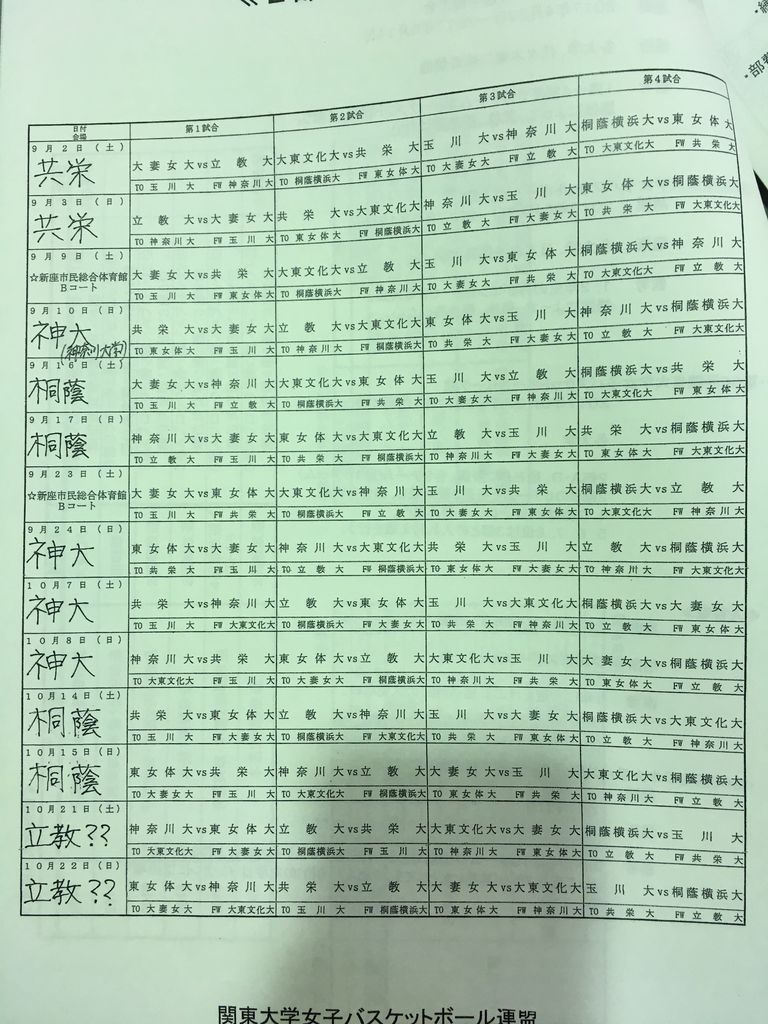 日付 第1試合 第2試合 第3試合 第4試合
会場
9月2日(土)
共栄
大妻女大vs立教大 大東文化大vs共栄大 玉川大vs神奈川大 桐蔭横浜大vs東女体大
TO 玉川大 FW 神奈川大 TO 桐蔭横浜大 FW 東女体大 TO 大妻女大 FW 立教大 TO 大東文化大 FW 共栄大
9月3日(日)
共栄
立教大vs大妻女大 共栄大vs大東文化大 神奈川大vs玉川大 東女体大vs桐蔭横浜大
TO 神奈川大 FW 玉川大 TO 東女体大 FW 桐蔭横浜大 TO 立教大 FW 大妻女大 TO 共栄大 FW 大東文化大
9月9日(土)
☆新座市民総合体育館
Bコート
大妻女大vs共栄大 大東文化大vs立教大 玉川大vs東女体大 桐蔭横浜大vs神奈川大
TO 玉川大 FW 東女体大 TO 桐蔭横浜大 FW 神奈川大 TO 大妻女大 FW 共栄大 TO 大東文化大 FW 立教大
9月10日(日)
神大
(神奈川大学)
共栄大vs大妻女大 立教大vs大東文化大 東女体大vs玉川大 神奈川大vs桐蔭横浜大
TO 東女体大 FW 玉川大 TO 神奈川大 FW 桐蔭横浜大 TO 共栄大 FW 大妻女大 TO 立教大 FW 大東文化大
9月16日(土)
桐蔭
大妻女大vs神奈川大 大東文化大vs東女体大 玉川大vs立教大 桐蔭横浜大vs共栄大
TO 玉川大 FW 立教大 TO 桐蔭横浜大 FW 共栄大 TO 大妻女大 FW 神奈川大 TO 大東文化大 FW 東女体大
9月17日(日)
桐蔭
神奈川大vs大妻女大 東女体大vs大東文化大 立教大vs玉川大 共栄大vs桐蔭横浜大
TO 立教大 FW 玉川大 TO 共栄大 FW 桐蔭横浜大 TO 神奈川大 FW 大妻女大 TO 東女体大 FW 大東文化大
9月23日(土)
☆新座市民総合体育館
Bコート
大妻女大vs東女体大 大東文化大vs神奈川大 玉川大vs共栄大 桐蔭横浜大vs立教大
TO 玉川大 FW 共栄大 TO 桐蔭横浜大 FW 立教大 TO 大妻女大 FW 東女体大 TO 大東文化大 FW 神奈川大
9月24日(日)
神大
東女体大vs大妻女大 神奈川大vs大東文化大 共栄大vs玉川大 立教大vs桐蔭横浜大
TO 共栄大 FW 玉川大 TO 立教大 FW 桐蔭横浜大 TO 東女体大 FW 大妻女大 TO 神奈川大 FW 大東文化大
10月7日(土)
神大
共栄大vs神奈川大 立教大vs東女体大 玉川大vs大東文化大 桐蔭横浜大vs大妻女大
TO 玉川大 FW 大東文化大 TO 桐蔭横浜大 FW 大妻女大 TO 共栄大 FW 神奈川大 TO 立教大 FW 東女体大
10月8日(日)
神大
神奈川大vs共栄大 東女体大vs立教大 大東文化大vs玉川大 大妻女大vs桐蔭横浜大
TO 大東文化大 FW 玉川大 TO 大妻女大 FW 桐蔭横浜大 TO 神奈川大 FW 共栄大 TO 東女体大 FW 立教大
10月14日(土)
桐蔭
共栄大vs東女体大 立教大vs神奈川大 玉川大vs大妻女大 桐蔭横浜大vs大東文化大
TO 玉川大 FW 大妻女大 TO 桐蔭横浜大 FW 大東文化大 TO 共栄大 FW 東女体大 TO 立教大 FW 神奈川大
10月15日(日)
桐蔭
東女体大vs共栄大 神奈川大vs立教大 大妻女大vs玉川大 大東文化大vs桐蔭横浜大
TO 大妻女大 FW 玉川大 TO 大東文化大 FW 桐蔭横浜大 TO 東女体大 FW 共栄大 TO 神奈川大 FW 立教大
10月21日(土)
立教??
神奈川大vs東女体大 立教大vs共栄大 大東文化大vs大妻女大 桐蔭横浜大vs玉川大
TO 大東文化大 FW 大妻女大 TO 桐蔭横浜大 FW 玉川大 TO 神奈川大 FW 東女体大 TO 立教大 FW 共栄大
10月22日(日)
立教??
東女体大vs神奈川大 共栄大vs立教大 大妻女大vs大東文化大 玉川大vs桐蔭横浜大
TO 大妻女大 FW 大東文化大 TO 玉川大 FW 桐蔭横浜大 TO 東女体大 FW 神奈川大 TO 共栄大 FW 立教大
関東大学女子バスケットボール連盟